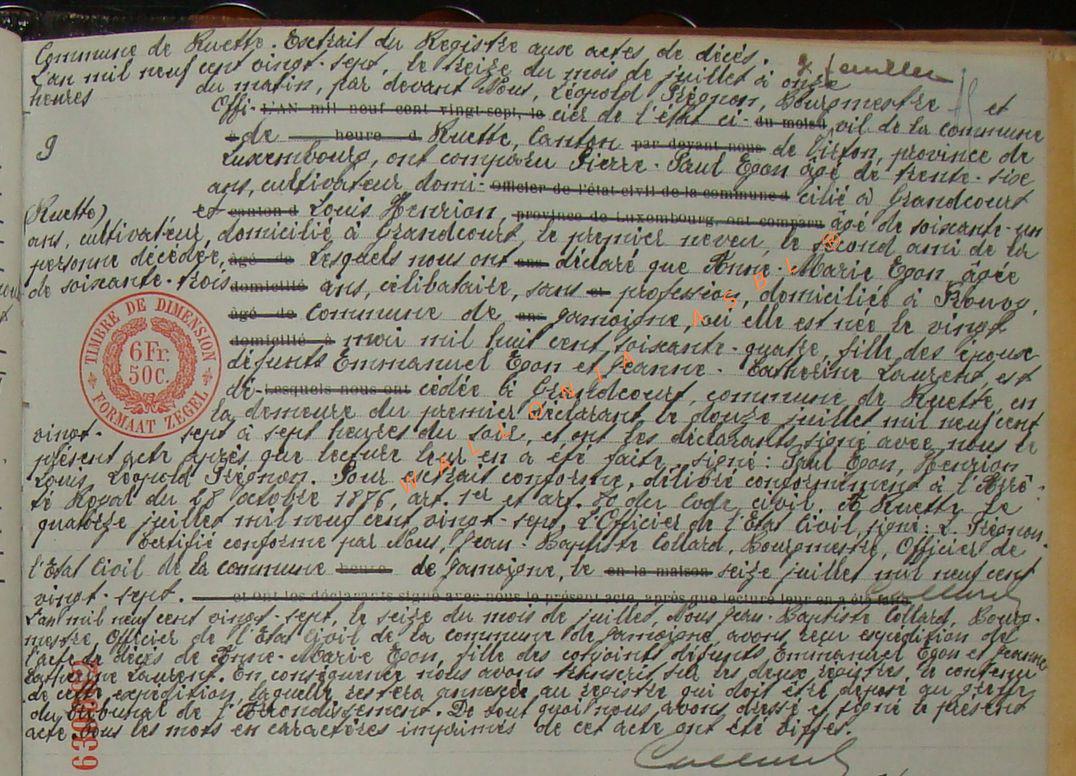 Commune de Ruette. Extrait du Registre aux actes de décès.
L'an mil neuf cent vingt-sept, le seize du mois de juillet à onze
heures du matin, par devant Nous, Léopold Trégnon, Bourgmestre et
Offi- L'AN mil neuf cent vingt-sept, le cier de l'état ci- du mois d vil de la commune
9 à de heure d Ruette, Canton par devant nous de Virton, province de
Luxembourg, ont comparu Pierre-Paul Egon âgé de trente-six
ans, cultivateur, domi- Officier de l'état civil de la commune d cilié à Grandcourt
(Ruette) et canton d Louis Henrion, province de Luxembourg, ont comparu âgé de soixante-un
ans, cultivateur, domicilié à Grandcourt, le premier neveu, le second ami de la
personne décédée, âgé de Lesquels nous ont déclaré que Anne-Marie Egon âgée
de soixante-trois domicilié ans, célibataire, sans et profession, domiciliée à Prouvy,
âgé de Commune de ans Jamoigne, où elle est née le vingt
domicilié à mai mil huit cent soixante-quatre, fille des époux
défunts Emmanuel Egon et Jeanne-Catherine Laurent, est
dé- Lesquels nous ont cédée à Grandcourt, commune de Ruette, en
la demeure du premier déclarant le douze juillet mil neuf cent
vingt-sept à sept heures du soir, et ont les déclarants signé avec nous le
présent acte après que lecture leur en a été faite, signé: Paul Egon, Henrion
Louis, Léopold Trégnon. Pour extrait conforme, délivré conformément à l'Arrê-
té Royal du 28 octobre 1876, art. 1er et art. 80 du Code civil. A Ruette le
quatorze juillet mil neuf cent vingt-sept. L'Officier de l'Etat Civil, signé: L. Trégnon.
Certifié conforme par Nous, Jean-Baptiste Collard, Bourgmestre, Officier de
l'Etat Civil de la commune heure de Jamoigne, le en la maison seize juillet mil neuf cent
vingt-sept. et ont les déclarants signé avec nous le présent acte, après que lecture leur en a été faite Collard
L'an mil neuf cent vingt-sept, le seize du mois de juillet, Nous Jean-Baptiste Collard, Bourg-
mestre, Officier de l'Etat Civil de la commune de Jamoigne, avons reçu expédition de
l'acte de décès de Anne-Marie Egon, fille des conjoints défunts Emmanuel Egon et Jeanne
Catherine Laurent. En conséquence nous avons transcrit sur les deux registres, le contenu
de cette expédition, laquelle restera annexée au registre qui doit être déposé au greffe
du Tribunal de l'Arrondissement. De tout quoi nous avons dressé et signé le présent
acte. Tous les mots en caractères imprimés de cet acte ont été biffés.
Collard
TIMBRE DE DIMENSION
6 Fr.
50C.
FORMAAT ZEGEL
WALLONIA ASBL